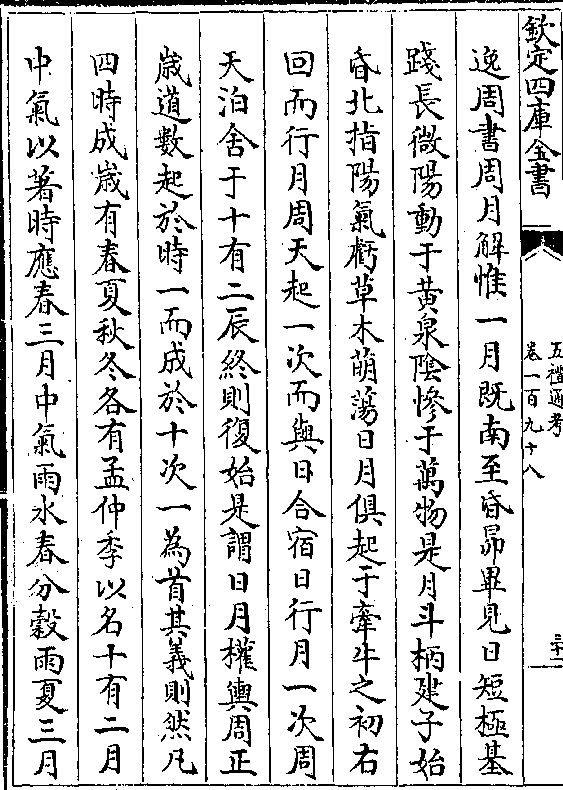 欽定四庫全書
五禮通考
卷一百九十八
三十二
逸周書周月解惟一月既南至昏昴畢見日短極基
踐長微陽動于黄泉陰慘于萬物是月斗柄建子始
昏北指陽氣虧草木萌蕩日月俱起于牽牛之初右
回而行月周天起一次而與日合宿日行月一次周
天泊舍于十有二辰終則復始是謂日月權輿周正
歲道數起於時一而成於十次一為首其義則然凡
四時成歲有春夏秋冬各有孟仲季以名十有二月
中氣以著時應春三月中氣雨水春分榖雨夏三月